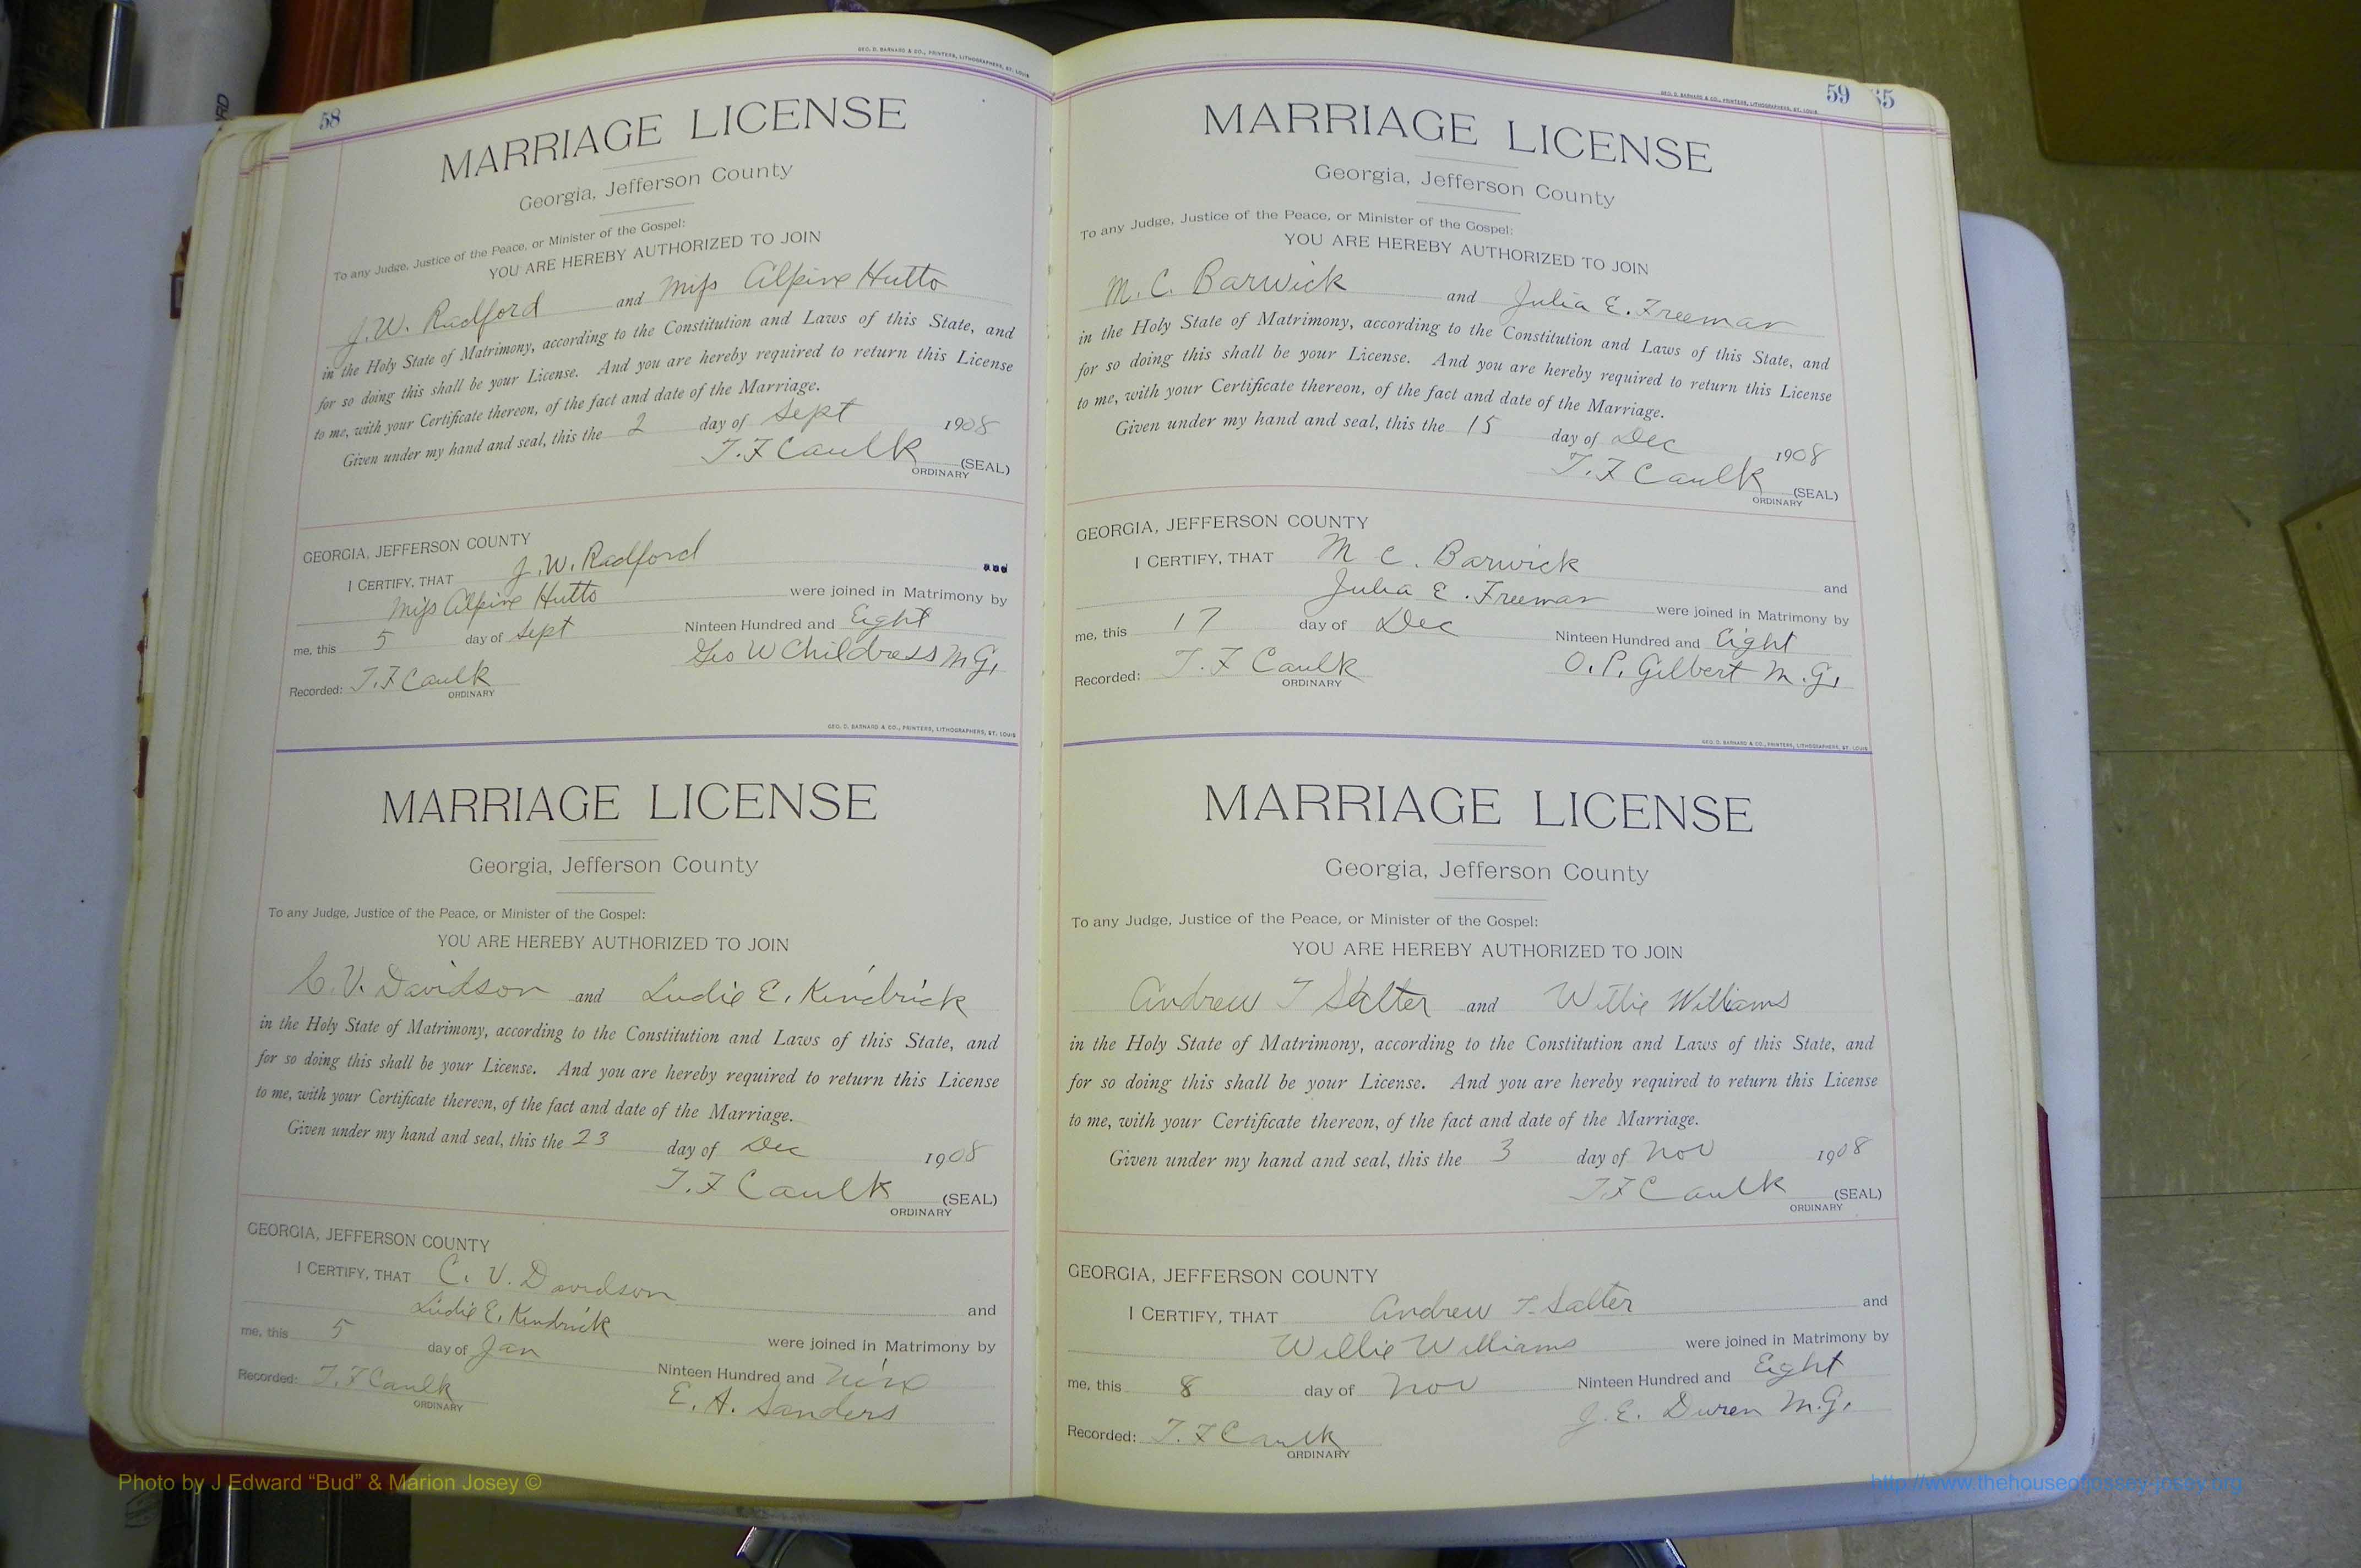 GEO. D. BARNARD & CO., PRINTERS, LITHOGRAPHERS, ST. LOUIS
58
MARRIAGE LICENSE
Georgia, Jefferson County
To any Judge, Justice of the Peace, or Minister of the Gospel:
YOU ARE HEREBY AUTHORIZED TO JOIN
J. W. Radford and Miss Alpine Hutto
in the Holy State of Matrimony, according to the Constitution and Laws of this State, and
for so doing this shall be your License. And you are hereby required to return this License
to me, with your Certificate thereon, of the fact and date of the Marriage.
Given under my hand and seal, this the 2 day of Sept 1908
T. F Caulk (SEAL)
ORDINARY
GEORGIA, JEFFERSON COUNTY
I CERTIFY, THAT J. W. Radford and
Miss Alpine Hutto were joined in Matrimony by
me, this 5 day of Sept Ninteen Hundred and Eight
Recorded: T. F Caulk Geo W Childress M G,
ORDINARY
GEO. D. BARNARD & CO., PRINTERS, LITHOGRAPHERS, ST. LOUIS
MARRIAGE LICENSE
Georgia, Jefferson County
To any Judge, Justice of the Peace, or Minister of the Gospel:
YOU ARE HEREBY AUTHORIZED TO JOIN
C. V. Davidson and Ludie E. Kendrick
in the Holy State of Matrimony, according to the Constitution and Laws of this State, and
for so doing this shall be your License. And you are hereby required to return this License
to me, with your Certificate thereon, of the fact and date of the Marriage.
Given under my hand and seal, this the 23 day of Dec 1908
T. F Caulk (SEAL)
ORDINARY
GEORGIA, JEFFERSON COUNTY
I CERTIFY, THAT C. V. Davidson
Ludie E. Kendrick and
were joined in Matrimony by
me, this 5 day of Jan Ninteen Hundred and Nine
Recorded: T. F Caulk E. A. Sanders
ORDINARY
GEO. D. BARNARD & CO., PRINTERS, LITHOGRAPHERS, ST. LOUIS
59
MARRIAGE LICENSE
Georgia, Jefferson County
To any Judge, Justice of the Peace, or Minister of the Gospel:
YOU ARE HEREBY AUTHORIZED TO JOIN
M. C. Barwick and Julia E. Freeman
in the Holy State of Matrimony, according to the Constitution and Laws of this State, and
for so doing this shall be your License. And you are hereby required to return this License
to me, with your Certificate thereon, of the fact and date of the Marriage.
Given under my hand and seal, this the 15 day of Dec 1908
T. F Caulk (SEAL)
ORDINARY
GEORGIA, JEFFERSON COUNTY
I CERTIFY, THAT M C. Barwick and
Julia E. Freeman were joined in Matrimony by
me, this 17 day of Dec Ninteen Hundred and Eight
Recorded: T. F Caulk O. P. Gilbert M. G,
ORDINARY
GEO. D. BARNARD & CO., PRINTERS, LITHOGRAPHERS, ST. LOUIS
MARRIAGE LICENSE
Georgia, Jefferson County
To any Judge, Justice of the Peace, or Minister of the Gospel:
YOU ARE HEREBY AUTHORIZED TO JOIN
Andrew T Salter and Willie Williams
in the Holy State of Matrimony, according to the Constitution and Laws of this State, and
for so doing this shall be your License. And you are hereby required to return this License
to me, with your Certificate thereon, of the fact and date of the Marriage.
Given under my hand and seal, this the 3 day of Nov 1908
T. F Caulk (SEAL)
ORDINARY
GEORGIA, JEFFERSON COUNTY
I CERTIFY, THAT Andrew T. Salter and
Willie Williams were joined in Matrimony by
me, this 8 day of Nov Ninteen Hundred and Eight
J. E. Duren M. G,
Recorded: T. F Caulk
ORDINARY
Photo by J Edward “Bud” & Marion Josey ©
http://www.thehouseofjossey-josey.org